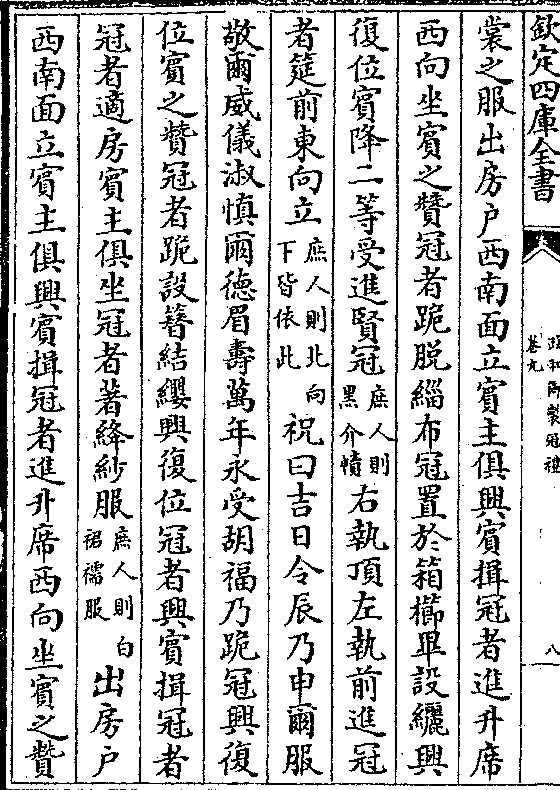 欽定四庫全書
政和御製冠禮
卷九
八
裳之服出房户西南面立賓主俱興賓揖冠者進升席
西向坐賓之贊冠者跪脱緇布冠置於箱櫛畢設纚興
復位賓降二等受進賢冠庶人則黑介幘右執頂左執前進冠
者筵前東向立庶人則北向下皆依此祝曰吉日令辰乃申爾服
敬爾威儀淑慎爾德眉壽萬年永受胡福乃跪冠興復
位賓之贊冠者跪設簪結纓興復位冠者興賓揖冠者
冠者適房賓主俱坐冠者著絳紗服庶人則白裙襦服出房户
西南面立賓主俱興賓揖冠者進升席西向坐賓之贊